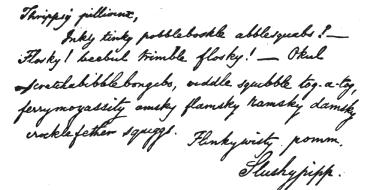 Thrippy pilliwinx,
Inky tinky pobblebockle abblesquabs? —
Flosky! beebul trimble flosky! — Okul
scratchabibblebongibo, viddle squibble tog-a-tog,
ferrymoyassity amsky flamsky ramsky damsky
crocklefether squiggs.
Flinkywisty pomm,
Slushypipp.